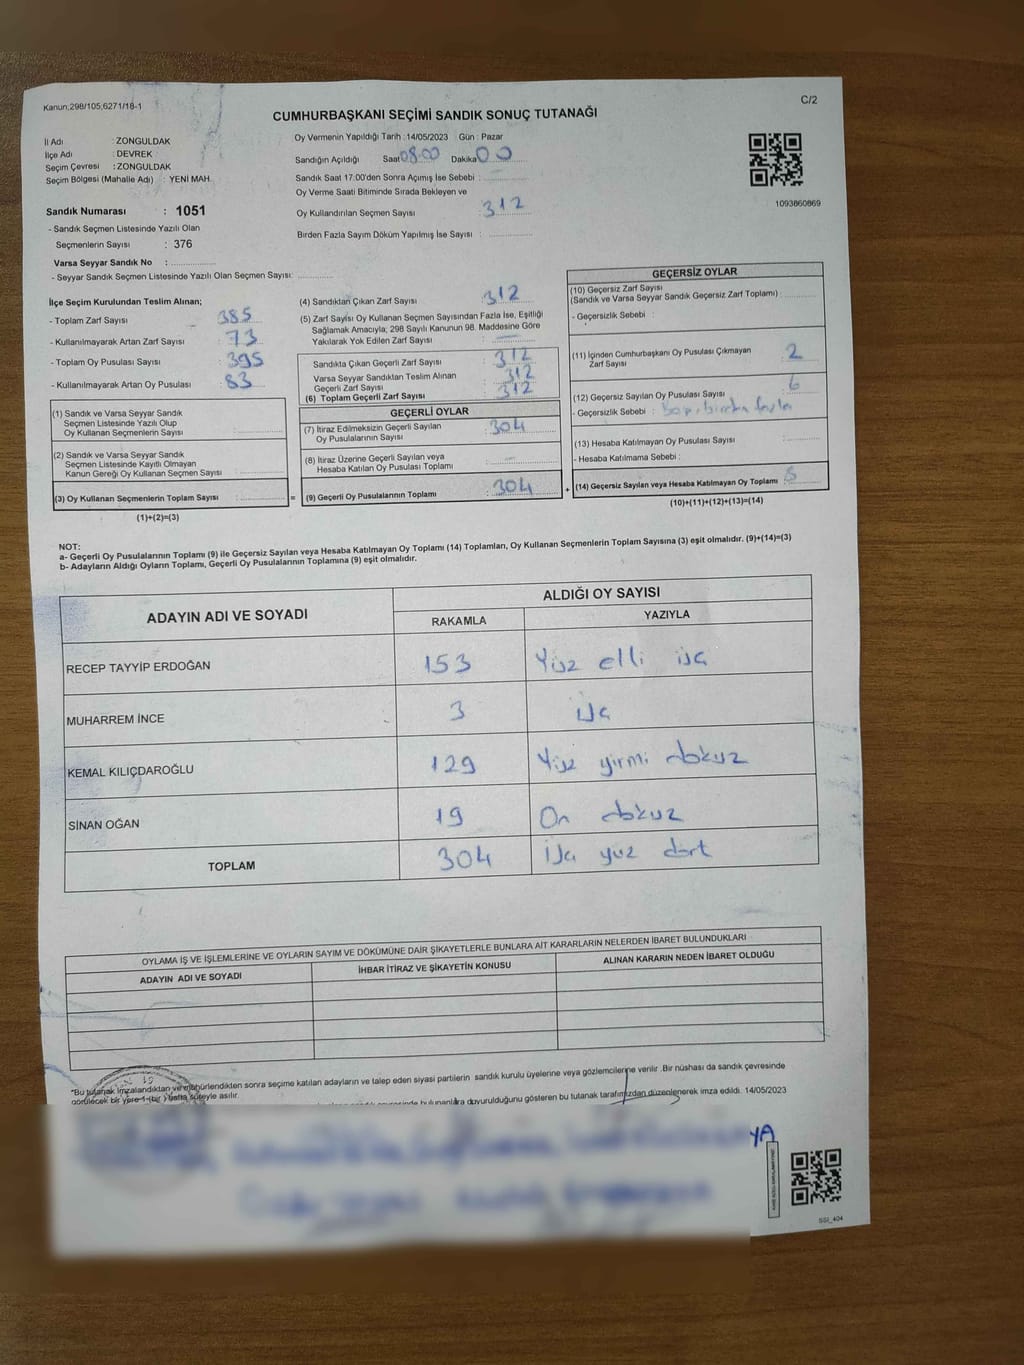 Kanun;298/105;6271/18-1
C/2
CUMHURBAŞKANI SEÇİMİ SANDIK SONUÇ TUTANAĞI
İl Adı : ZONGULDAK
İlçe Adı : DEVREK
Seçim Çevresi : ZONGULDAK
Seçim Bölgesi (Mahalle Adı) : YENİ MAH.
Oy Vermenin Yapıldığı Tarih : 14/05/2023 Gün : Pazar
Sandığın Açıldığı Saat 08:00 Dakika 00
Sandık Saat 17:00'den Sonra Açımış İse Sebebi :
Oy Verme Saati Bitiminde Sırada Bekleyen ve
Oy Kullandırılan Seçmen Sayısı : 312
Birden Fazla Sayım Döküm Yapılmış İse Sayısı :
1093860869
Sandık Numarası : 1051
- Sandık Seçmen Listesinde Yazılı Olan
Seçmenlerin Sayısı : 376
Varsa Seyyar Sandık No :
- Seyyar Sandık Seçmen Listesinde Yazılı Olan Seçmen Sayısı:
İlçe Seçim Kurulundan Teslim Alınan;
- Toplam Zarf Sayısı : 385
- Kullanılmayarak Artan Zarf Sayısı : 73
- Toplam Oy Pusulası Sayısı : 395
- Kullanılmayarak Artan Oy Pusulası : 83
(1) Sandık ve Varsa Seyyar Sandık
Seçmen Listesinde Yazılı Olup
Oy Kullanan Seçmenlerin Sayısı :
(2) Sandık ve Varsa Seyyar Sandık
Seçmen Listesinde Kayıtlı Olmayan
Kanun Gereği Oy Kullanan Seçmen Sayısı :
(3) Oy Kullanan Seçmenlerin Toplam Sayısı : =
(1)+(2)=(3)
(4) Sandıktan Çıkan Zarf Sayısı : 312
(5) Zarf Sayısı Oy Kullanan Seçmen Sayısından Fazla İse, Eşitliği
Sağlamak Amacıyla; 298 Sayılı Kanunun 98. Maddesine Göre
Yakılarak Yok Edilen Zarf Sayısı :
Sandıkta Çıkan Geçerli Zarf Sayısı : 312
Varsa Seyyar Sandıktan Teslim Alınan
Geçerli Zarf Sayısı : 312
(6) Toplam Geçerli Zarf Sayısı : 312
GEÇERLİ OYLAR
(7) İtiraz Edilmeksizin Geçerli Sayılan
Oy Pusulalarının Sayısı : 304
(8) İtiraz Üzerine Geçerli Sayılan veya
Hesaba Katılan Oy Pusulası Toplamı :
(9) Geçerli Oy Pusulalarının Toplamı : 304 +
GEÇERSİZ OYLAR
(10) Geçersiz Zarf Sayısı
(Sandık ve Varsa Seyyar Sandık Geçersiz Zarf Toplamı) :
- Geçersizlik Sebebi :
(11) İçinden Cumhurbaşkanı Oy Pusulası Çıkmayan
Zarf Sayısı : 2
(12) Geçersiz Sayılan Oy Pusulası Sayısı : 6
- Geçersizlik Sebebi : birden fazla
(13) Hesaba Katılmayan Oy Pusulası Sayısı :
- Hesaba Katılmama Sebebi :
(14) Geçersiz Sayılan veya Hesaba Katılmayan Oy Toplamı : 8
(10)+(11)+(12)+(13)=(14)
NOT:
a- Geçerli Oy Pusulalarının Toplamı (9) ile Geçersiz Sayılan veya Hesaba Katılmayan Oy Toplamı (14) Toplamları, Oy Kullanan Seçmenlerin Toplam Sayısına (3) eşit olmalıdır. (9)+(14)=(3)
b- Adayların Aldığı Oyların Toplamı, Geçerli Oy Pusulalarının Toplamına (9) eşit olmalıdır.
ADAYIN ADI VE SOYADI
ALDIĞI OY SAYISI
RAKAMLA YAZIYLA
RECEP TAYYİP ERDOĞAN 153 Yüz elli üç
MUHARREM İNCE 3 üç
KEMAL KILIÇDAROĞLU 129 Yüz yirmi dokuz
SİNAN OĞAN 19 On dokuz
TOPLAM 304 Üç yüz dört
OYLAMA İŞ VE İŞLEMLERİNE VE OYLARIN SAYIM VE DÖKÜMÜNE DAİR ŞİKAYETLERLE BUNLARA AİT KARARLARIN NELERDEN İBARET BULUNDUKLARI
ADAYIN ADI VE SOYADI İHBAR İTİRAZ VE ŞİKAYETİN KONUSU ALINAN KARARIN NEDEN İBARET OLDUĞU
*Bu tutanak imzalandıktan ve mühürlendikten sonra seçime katılan adayların ve talep eden siyasi partilerin sandık kurulu üyelerine veya gözlemcilerine verilir .Bir nüshası da sandık çevresinde
görülecek bir yere 1-(bir ) hafta süreyle asılır.
bulunanlara duyurulduğunu gösteren bu tutanak tarafımızdan düzenlenerek imza edildi. 14/05/2023
YA
SSI_404